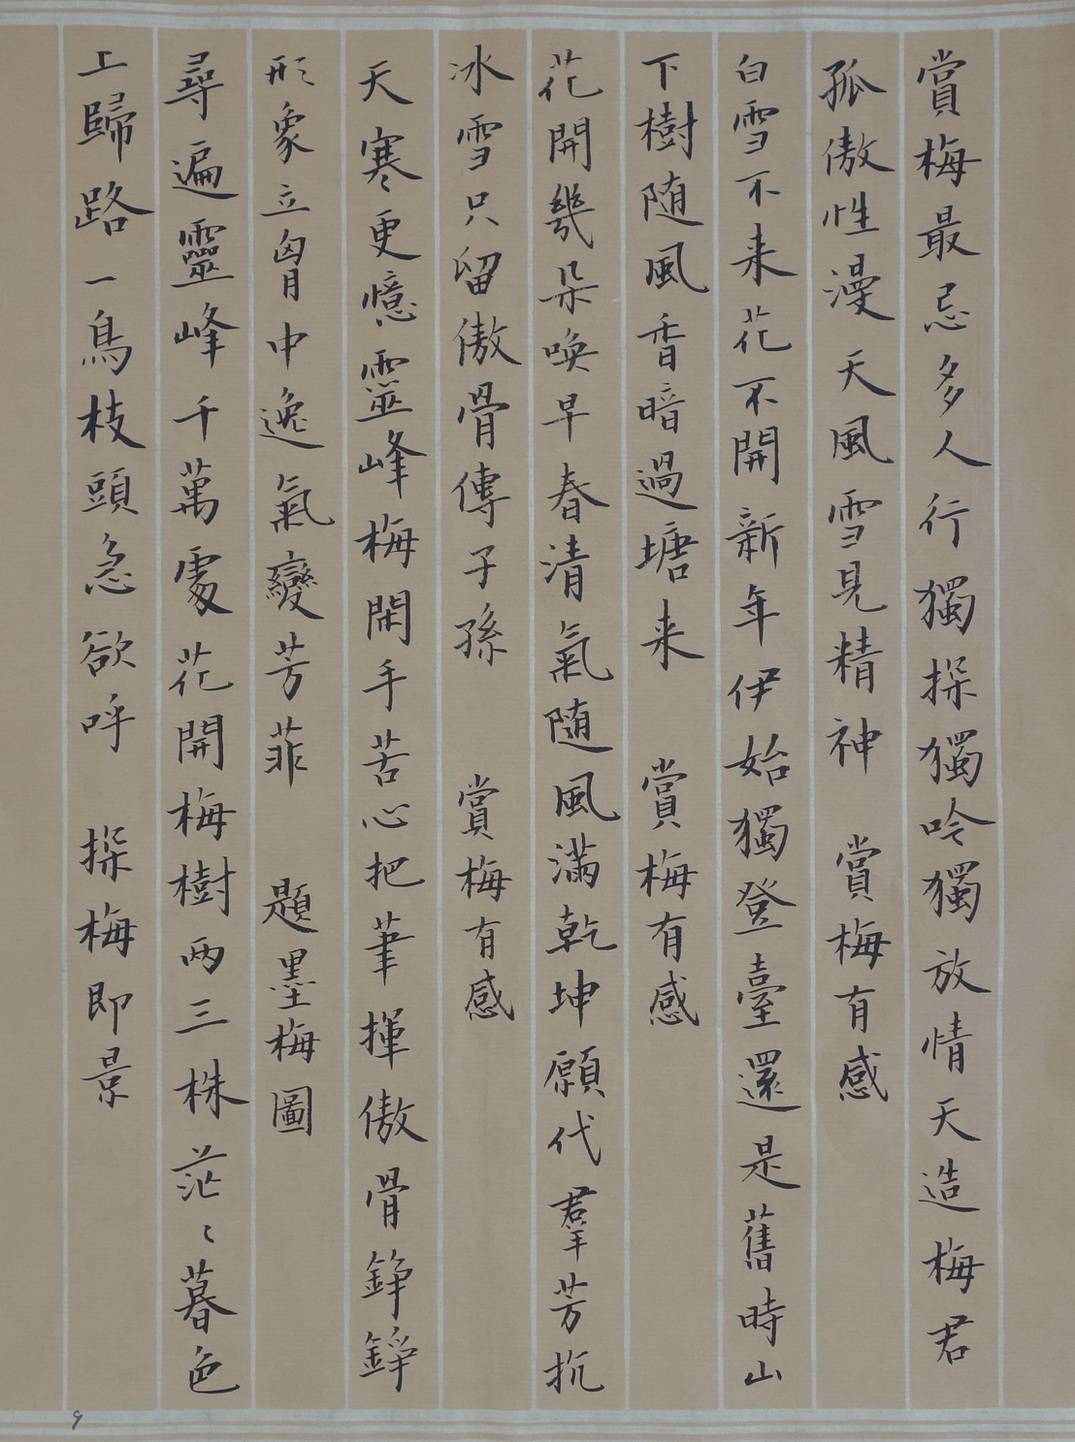 賞梅最忌多人行獨探獨吟獨放情天造梅君
孤傲性漫天風雪見精神 賞梅有感
白雪不来花不開新年伊始獨登臺還是舊時山
下樹随風香暗過塘来 賞梅有感
花開幾朵喚早春清氣随風滿乾坤願代羣芳抗
冰雪只留傲骨傳子孫 賞梅有感
天寒更憶靈峰梅閑手苦心把筆揮傲骨錚錚
形象立胷中逸氣變芳菲 題墨梅圖
尋遍靈峰千萬處花開梅樹兩三株茫〻暮色
上歸路一鳥枝頭急欲呼 探梅即景
9